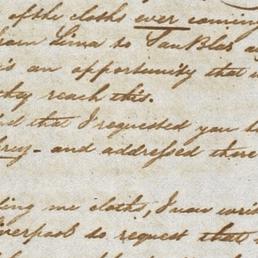 of the cloths ever coming
from Lima to San Blas a
is an opportunity that
they reach this.
nd that I requested you to
rey - and addressed there
ding me cloths, I now writ
verpool to request that